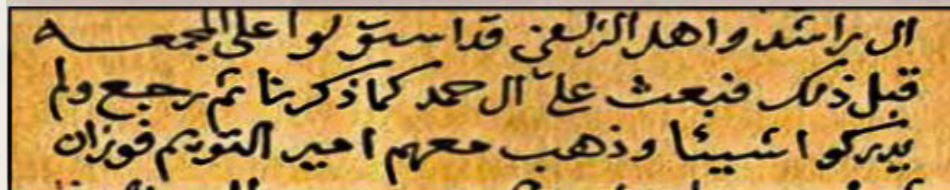 ال راشد واهل الزلفي قد استولوا على المجمعه
قبل ذلك فبعث على آل حمد كما ذكرنا ثم رجع ولم
يدركوا شيئا وذهب معهم امير التويم فوزان